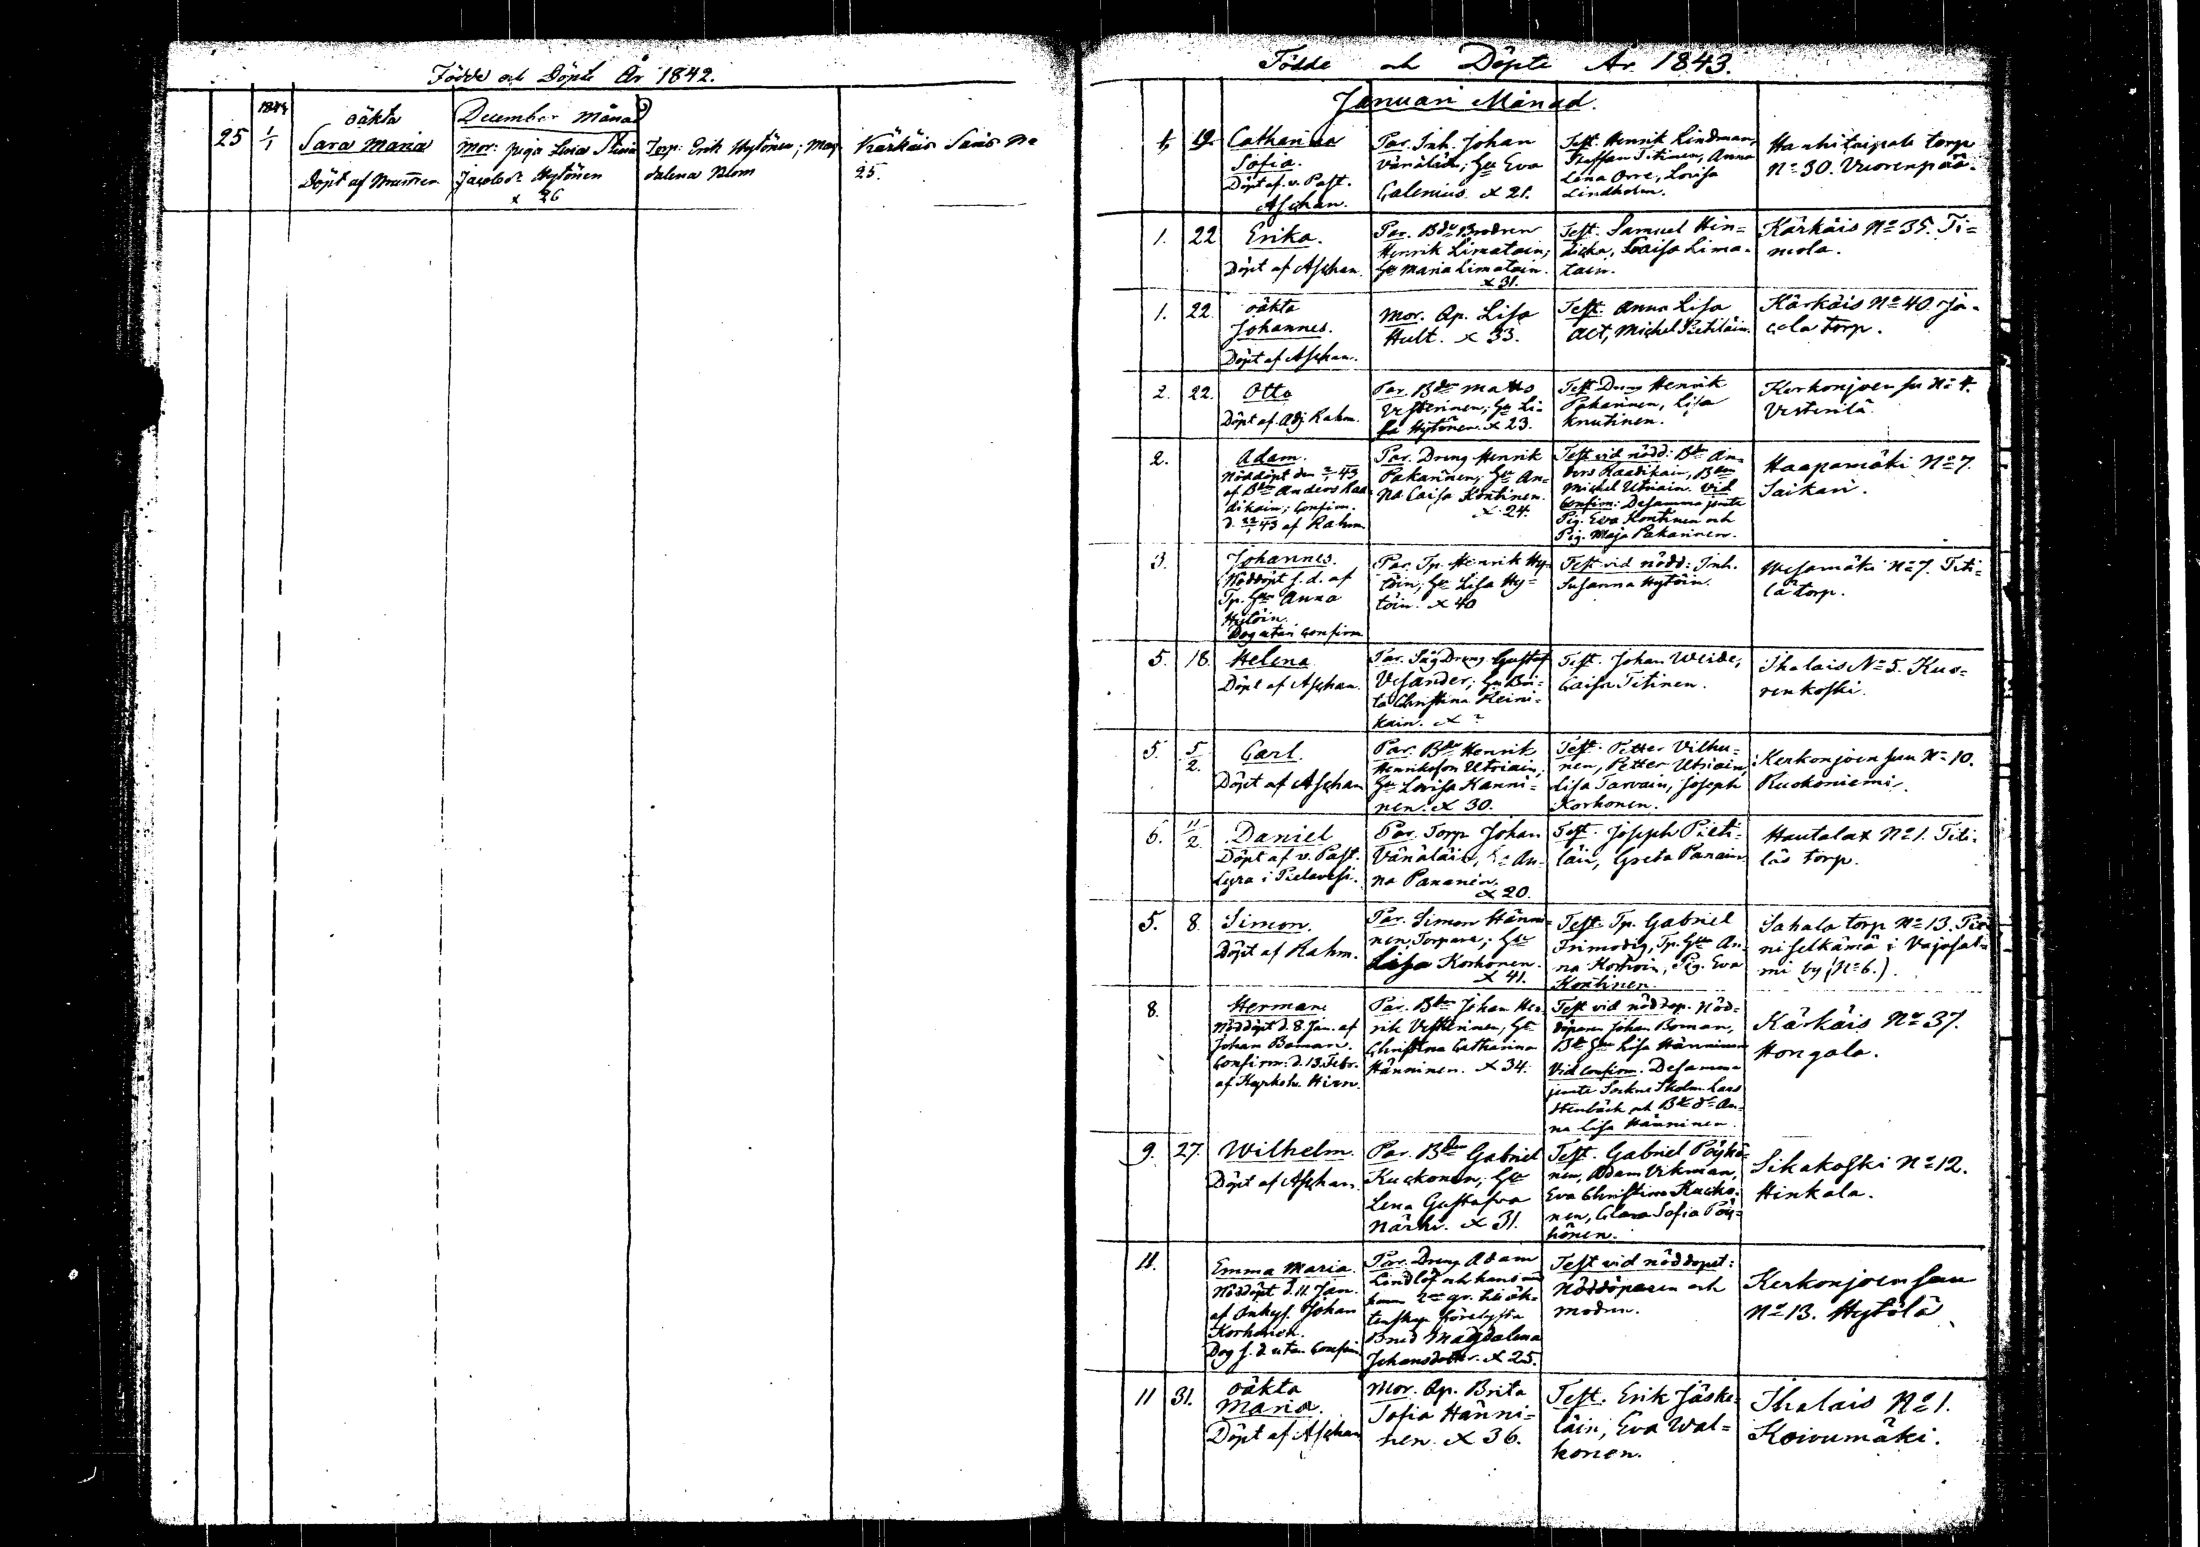 Födde och Döpte År 1842.
December Månad
25 1/1 oäkta
Sara Maria
Döpt af
Mor: piga Lovisa Stina
Jacobsdr Hytönen
x 26
Torp: Erik Hytönen, Mag-
dalena Blom
Kärkäis
25.
Födde och Döpte År 1843.
Januari Månad.
1. 19. Catharina
Sofia.
Döpt af v. Past.
Aschan.
Par. Inh. Johan
Vänäläin; Hu Eva
Galenius x 21.
Test. Henrik Lindman,
Staffan Titinen, Anna
Lena Orre, Lovisa
Lindholm.
Hanhitaipale torp
No 30. Vuorenpää.
1. 22 Erika.
Döpt af Aschan.
Par. Bdn Brodren
Henrik Limatain;
Hu Maria Limatain.
x 31.
Test. Samuel Hin=
dicka, Caisa Lima-
tain.
Kärkäis No 35. Ti=
mola.
1. 22. oäkta
Johannes.
Döpt af Aschan.
Mor. Qp. Lisa
Hult. x 33.
Test. Anna Lisa
Alt, Michel Pietiläin.
Kärkäis No 40 Ja-
cola torp.
2. 22. Otto
Döpt af Adj. Rahm.
Par. Bdn Matts
Vesterinen; Hu Li-
sa Hytönen. x 23.
Test. Dreng Henrik
Pakarinen, Lisa
Knutinen.
Kerkonjoensu No 4.
Vesterilä.
2. Adam.
Nöddöpt den 2/1 43
af Bdn Anders Raa-
dikain; Confirm.
d. 22/1 43 af Rahm.
Par. Dreng Henrik
Pakarinen; Hu An-
na Caisa Kontinen.
x 24.
Test. vid nödd: Bdn An-
ders Raadikain, Bdn
Michel Utriain. Vid
Confirm: Desamma jemte
Pig. Eva Kontinen och
Pig. Maja Pakarinen.
Haapamäki No 7.
Saikari.
3. Johannes.
Nöddöpt s. d. af
Tp. Hu Anna
Hytöin.
Dog utan Confirm.
Par. Tp. Henrik Hy-
töin; Hu Lisa Hy=
töin. x 40
Test vid nödd: Inh.
Susanna Hytöin.
Wesamäki No 7. Titi=
lä torp.
5. 18. Helena
Döpt af Aschan.
Par. Såg Dreng Gustaf
Vesander; Hu Bri-
ta Christina Heini=
kain. x ?
Test. Johan Weide,
Caisa Titinen.
Ihalais No 5. Kuo-
renkoski.
5. 5/2. Carl.
Döpt af Aschan
Par. Bdn Henrik
Henriksson Utriain;
Hu Lovisa Hanni=
nen. x 30.
Test. Petter Vilhu=
nen, Petter Utriain,
Lisa Tarvain, Joseph
Korhonen.
Kerkonjoensuu No 10.
Ruokoniemi.
6. 11/2. Daniel
Döpt af v. Past.
Lyra i Pielavesi.
Par. Torp Johan
Vänäläin, Hu An-
na Pananen.
x 20.
Test. Joseph Pieti-
läin, Greta Parain
Hautolax No 1. Titi-
läs torp.
5. 8. Simon.
Döpt af Rahm.
Par. Simon Hänni=
nen, Torpare; Hu
Lisa Korhonen.
x 41.
Test. Tp. Gabriel
Frimodig, Tp. Hu An-
na Korhoin, Pig. Eva
Kontinen.
Sahala torp No 13.
niselkämä i Vajosal-
mi by (No 6.).
8. Herman
Nöddöpt d. 8 Jan. af
Johan Boman.
Confirm: d. 13. Febr.
af Kyrkoh. Hirn.
Par. Bdn Johan Hen-
rik Vesterinen; Hu
Christina Catharina
Hänninen. x 34.
Test vid nöddop. Nöd=
döparen Johan Boman,
Bde Hu Lisa Hänninen
Vid confirm. Desamma
jemte Sockne Skolm. Lars
Stenbäck och Bde dr An-
na Lisa Hänninen.
Kärkäis No 37.
Hongola.
9. 27. Wilhelm.
Döpt af Aschan.
Par. Bden Gabriel
Kuckonen; Hu
Lena Gustafva
Närhi. x 31.
Test. Gabriel Pöyhö-
nen, Adam Vikman,
Eva Christina Kucko-
nen, Clara Sofia Pöy-
hönen.
Sikakoski No 12.
Hinkala.
11. Emma Maria.
Nöddöpt d. 11. Jan.
af Inhys. Johan
Korhonen.
Dog s. d utan Confirm
Par. Dreng Adam
Lindlöf och hans med
honom 2ne gr. till äk-
tenskap förelysta
Brud Magdalena
Johansdotter. x 25.
Test vid nöddopet:
Nöddöparen och
modren.
Kerkonjoensuu
No 13. Hytölä
11 31. oäkta
Maria.
Döpt af Aschan
Mor. Qp. Brita
Sofia Hänni=
nen. x 36.
Test. Erik Jäske-
läin, Eva Wal=
konen.
Ihalais No 1.
Koivumäki.